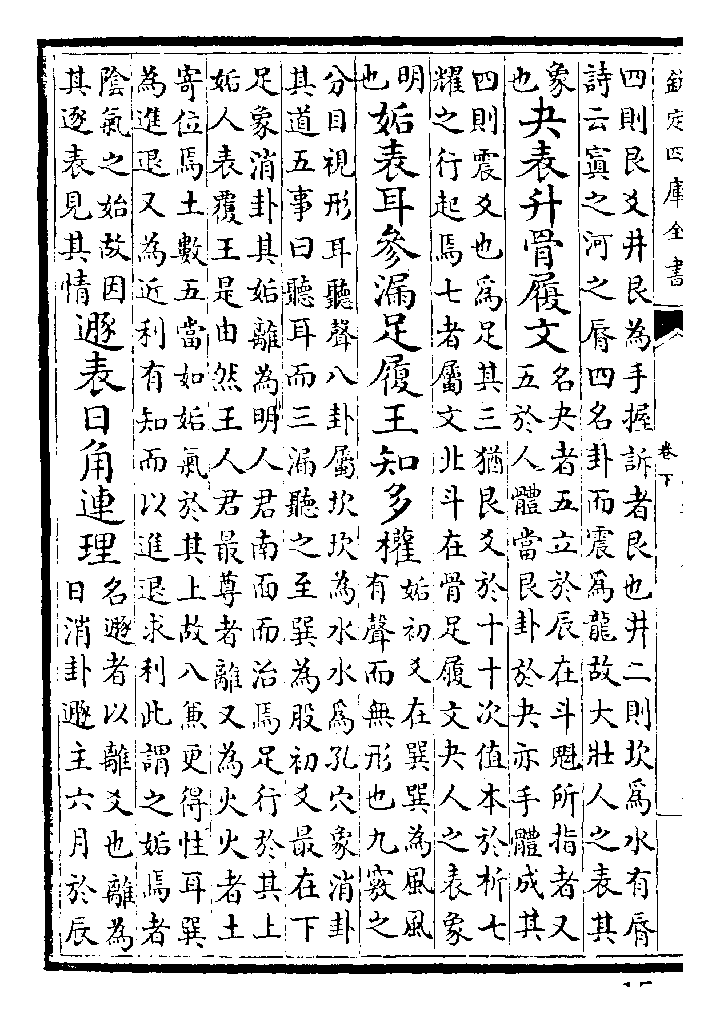 欽定四庫全書
卷下
四則艮爻井艮為手握訴者艮也井二則坎為水有脣
詩云寘之河之脣四名卦而震為龍故大壯人之表其
象
也
夬表升骨履文
名夬者五立於辰在斗魁所指者又
五於人體當艮卦於夬亦手體成其
四則震爻也為足其三猶艮爻於十十次值本於析七
耀之行起焉七者屬文北斗在骨足履文夬人之表象
明
也
姤表耳參漏足履王知多權
姤初爻在巽巽為風風
有聲而無形也九竅之
分目視形耳聽聲八卦屬坎坎為水水為孔穴象消卦
其道五事曰聽耳而三漏聽之至巽為股初爻最在下
足象消卦其姤離為明人君南面而治焉足行於其上
姤人表覆王是由然王人君最尊者離又為火火者土
寄位焉土數五當如姤氣於其上故八兼更得性耳巽
為進退又為近利有知而以進退求利此謂之姤焉者
陰氣之始故因
其遯表見其情
遯表日角連理
名遯者以離爻也離為
日消卦遯主六月於辰